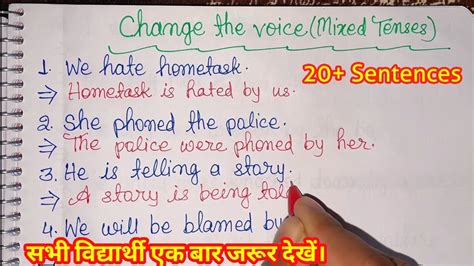 Change the voice (Mixed Tenses)
20+ Sentences
1. We hate hometask.
⇒ Hometask is hated by us.
2. She phoned the police.
⇒ The police were phoned by her.
3. He is telling a story.
⇒ A story is being told
4. We will be blamed by
सभी विद्यार्थी एक बार जरूर देखें।